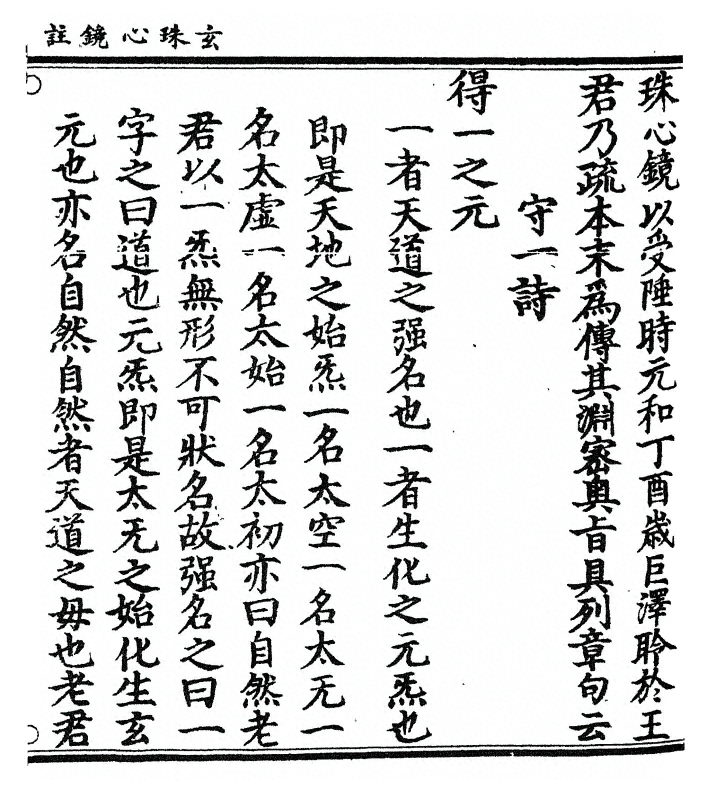 玄珠心鏡註
珠心鏡以受陲時元和丁酉歲巨澤聆於王
君乃疏本末爲傳其淵密奥旨具列章句云
守一詩
得一之元
一者天道之强名也一者生化之元炁也
即是天地之始炁一名太空一名太无一
名太虛一名太始一名太初亦曰自然老
君以一炁無形不可狀名故强名之曰一
字之曰道也元炁即是太无之始化生玄
元也亦名自然自然者天道之毋也老君